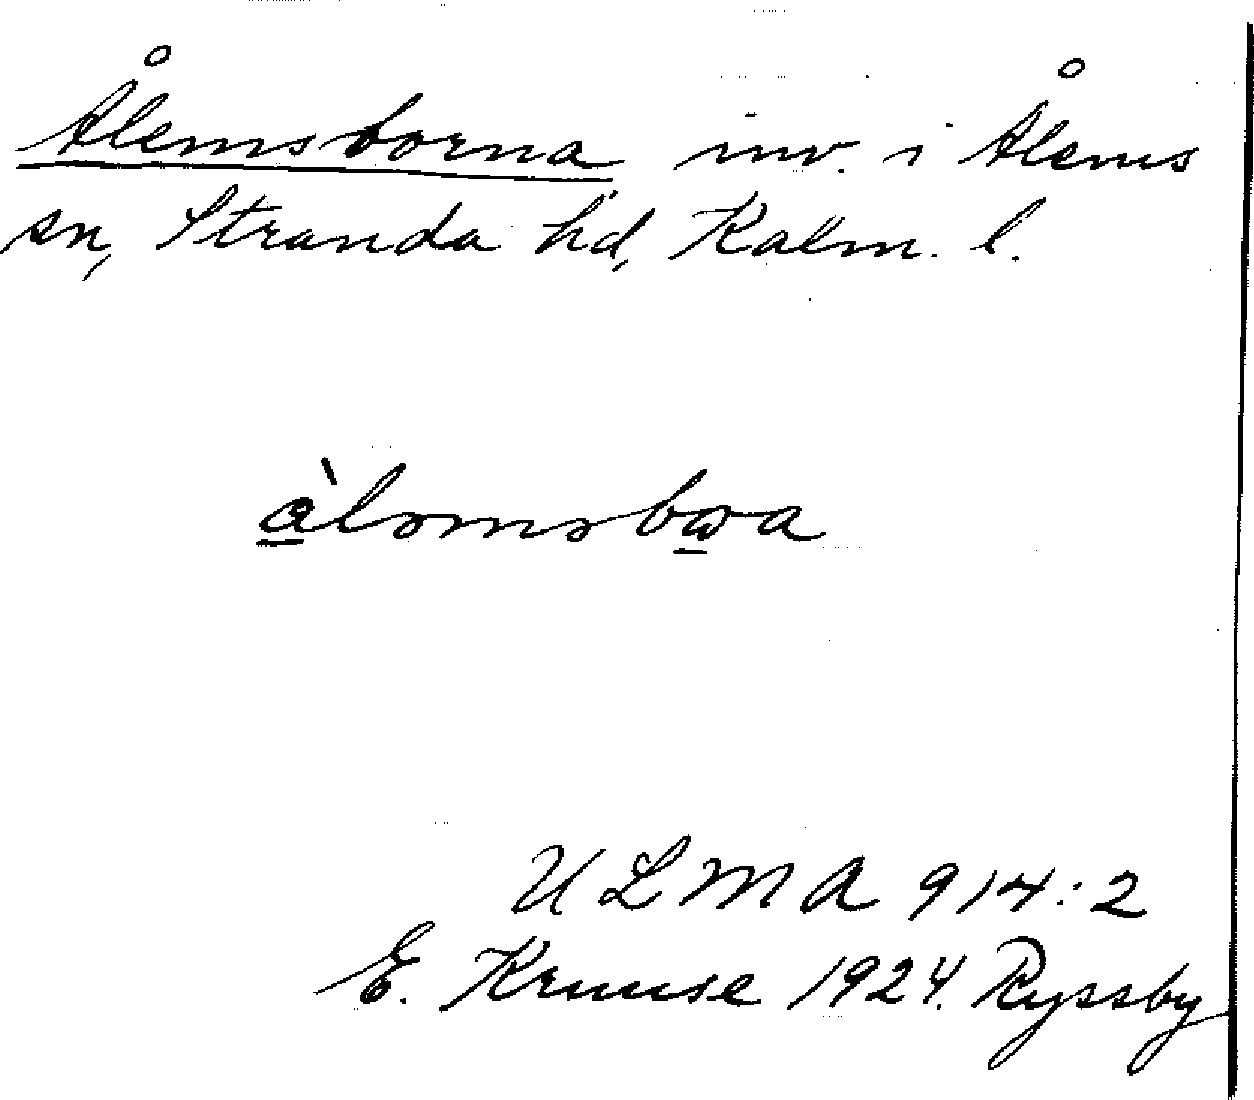 Ålemsborna inv. i Ålems
sn, Stranda hd, Kalm. l.
å̱̀lomsbω̱a
ULMA 914:2
E. Kruuse 1924. Ryssby